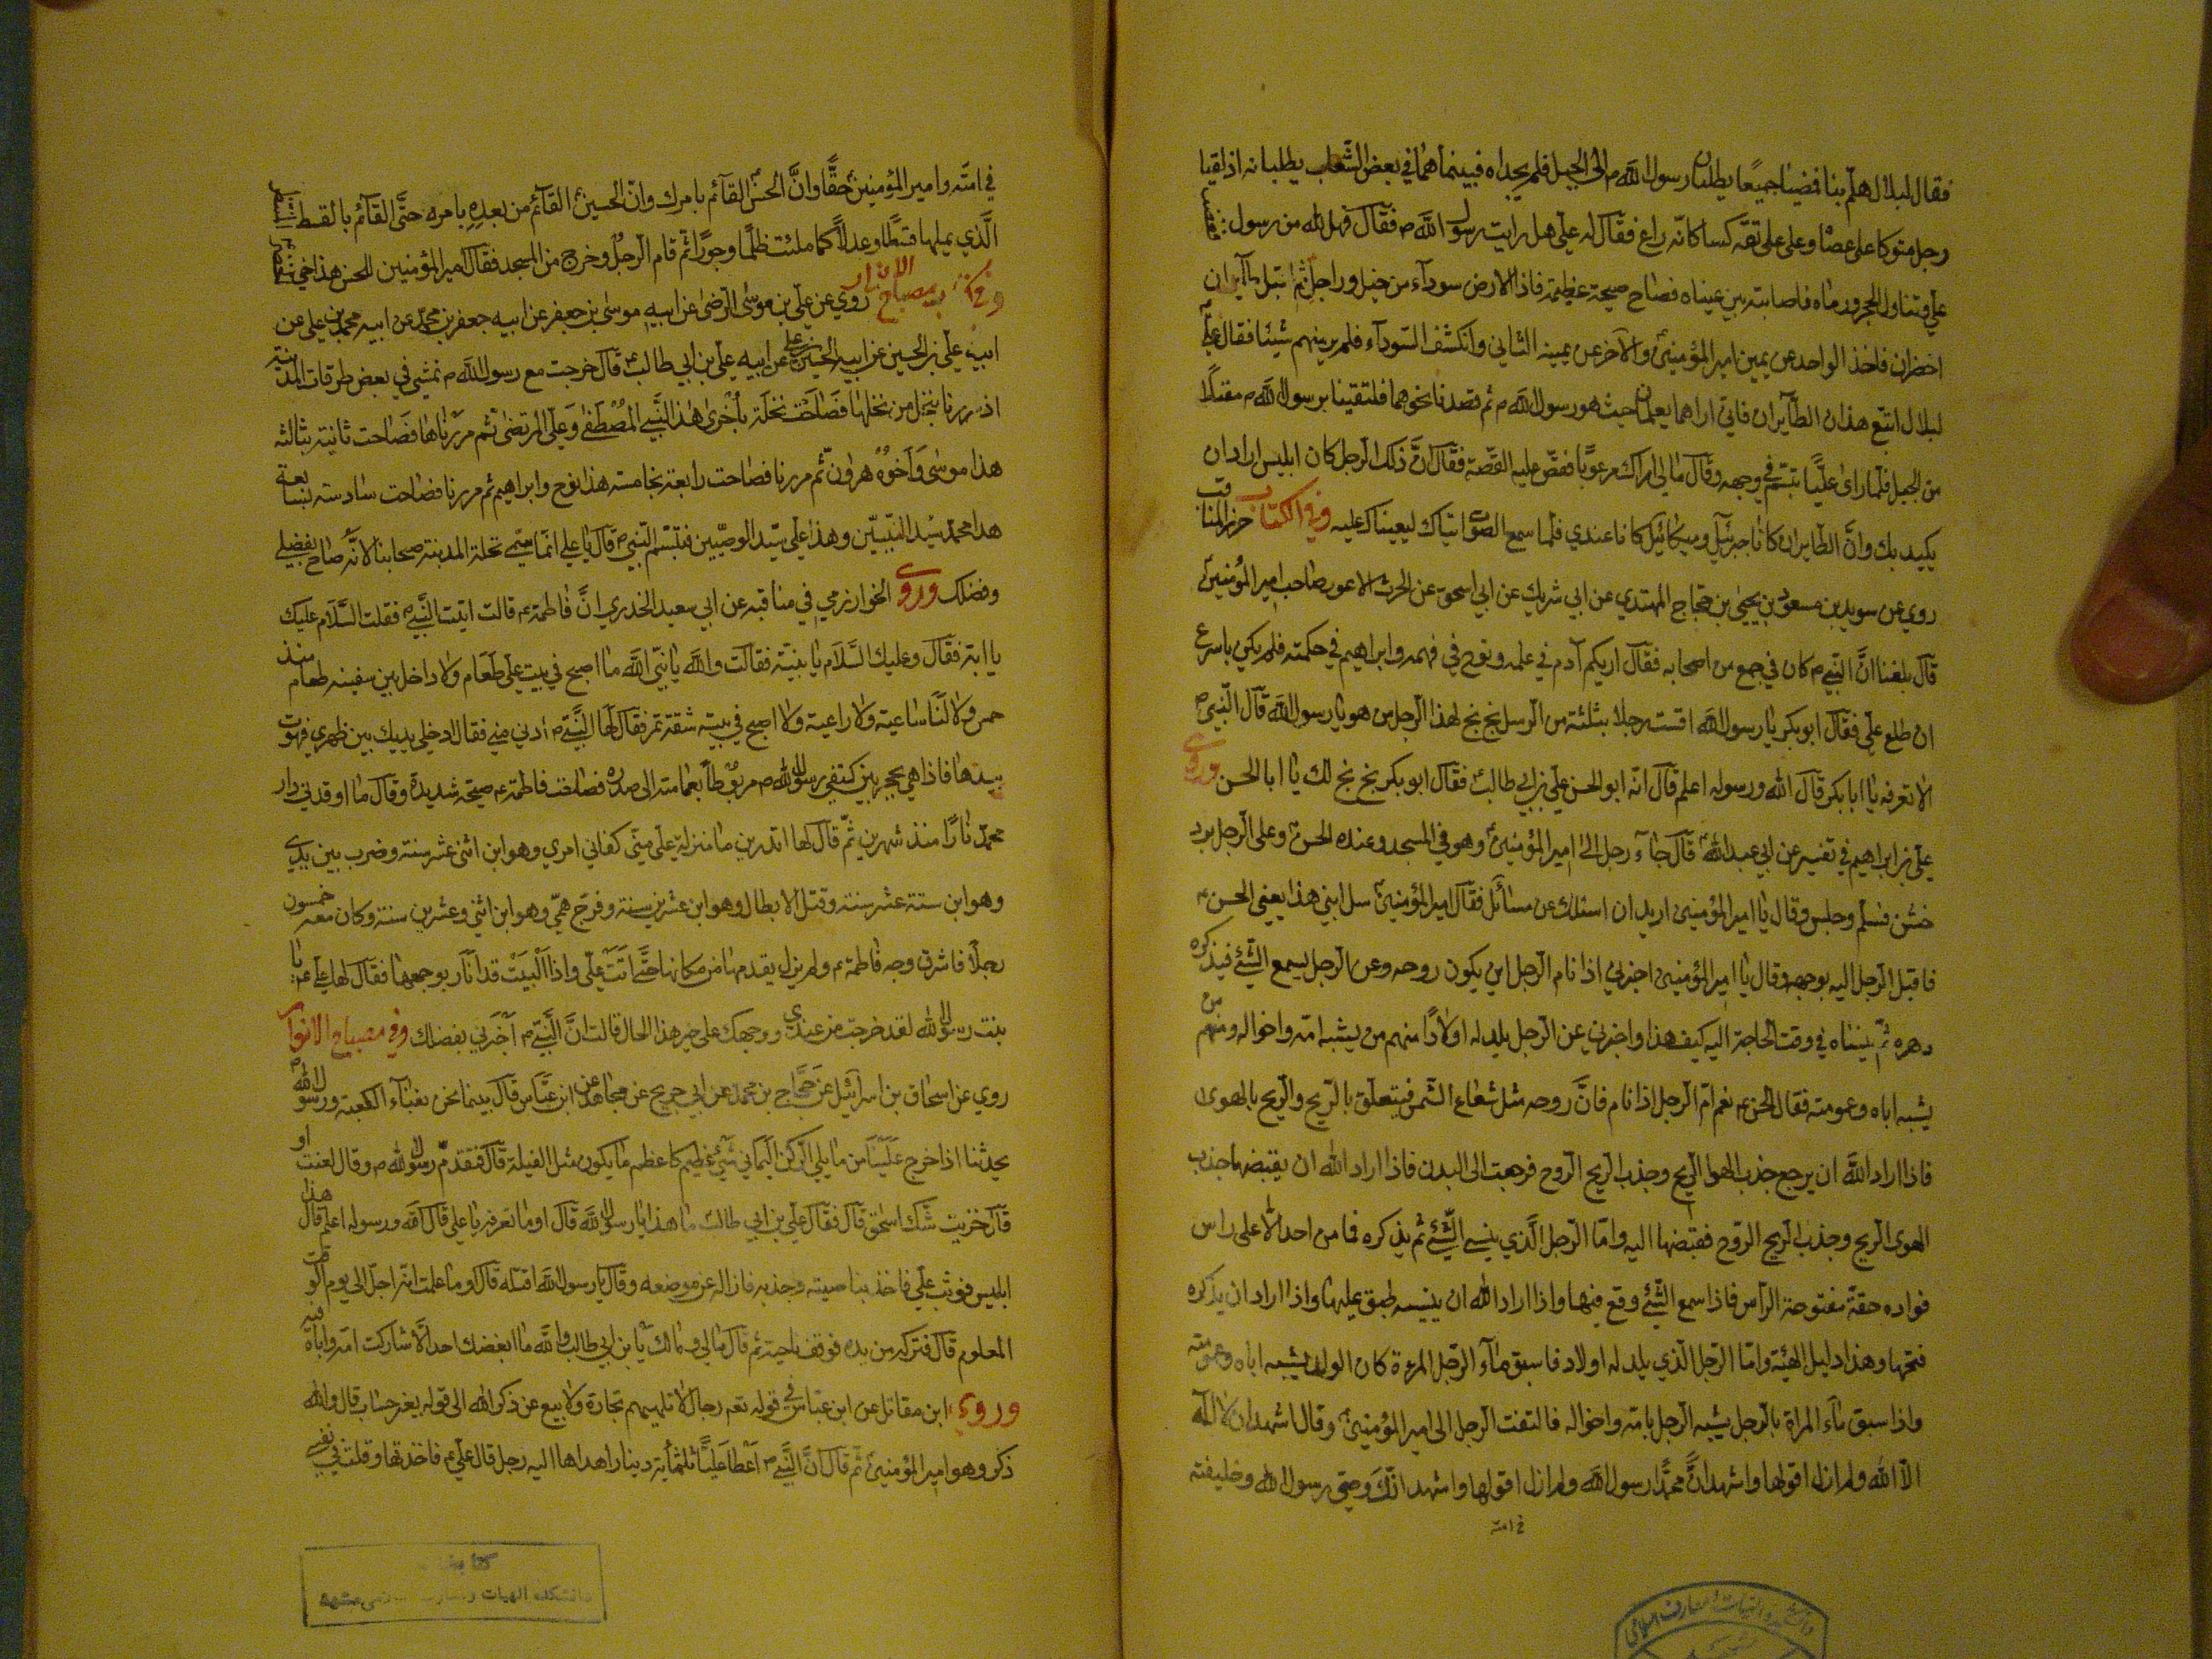 فقال لبلال هلم بنا فمضيا جميعا يطلبان رسول الله ص الى الجبل فلم يجداه فبينما هما في بعض الشعاب يطلبانه اذ لقيا
رجل متوكا على عصا وعلى تقه كسا كانه راع فقال له علي هل رايت رسول الله ص فقال فهل لله من رسول
علي فتناول الحجر ورماه فاصابته بين عيناه فصاح صيحة عظيمة فاذا الارض سودآء من خيل وراجل ثم اقبل طآيران
اخضران فاخذ الواحد عن يمين امير المؤمنين والآخر عن يمينه الثاني وانكشف السودآء فلم ير منهم شيئا فقال علي
لبلال اتبع هذان الطآيران فاني اراهما يعلمان حيث هو رسول الله ص ثم قصدنا نحوهما فلتقينا برسول الله ص مقبلا
من الجبل فلما راى عليا تبسم في وجهه وقال مالي اراك مرعوبا فقص عليه القصة فقال ان ذلك الرجل كان ابليس اراد ان
يكيد بك وان الطايران كانا جبرئيل وميكائيل كانا عندي فلما سمع الصوت اتياك ليعيناك عليه وفي الكتاب حرز المناقب
روي عن سويد بن مسعود بن يحيى بن حجاج المهتدي عن ابي شريك عن ابي اسحق عن الحرث الاعور صاحب امير المؤمنين
قال بلغنا ان النبي ص كان في جمع من اصحابه فقال اريكم آدم في علمه ونوح في فهمه وابراهيم في حكمته فلم يكن باسرع
ان طلع علي فقال ابو بكر يا رسول الله اقست رجلا بثلثة من الرسل بخ بخ لهذا الرجل من هو يا رسول الله قال النبي ص
الا تعرفه يا ابا بكر قال الله ورسوله اعلم قال انه ابو الحسن علي بن ابي طالب فقال ابو بكر بخ بخ لك يا ابا الحسن وروى
علي بن ابراهيم في تفسير عن ابي عبد الله قال جآء رجل الى امير المؤمنين وهو في المسجد وعنده الحسن وعلى الرجل برد
خشن فسلم وجلس وقال يا امير المؤمنين اريد ان اسئلك عن مسائل فقال امير المؤمنين سل ابني هذا يعني الحسن
فاقبل الرجل اليه بوجهه وقال يا امير المؤمنين اخبرني اذا نام الرجل اين يكون روحه وعن الرجل يسمع الشئ فيذكره
دهره ثم ينساه في وقت الحاجة اليه كيف هذا واخبرني عن الرجل يلد له اولادا منهم من يشبه امه واخواله ومنهم من
يشبه اباه وعمومته فقال الحسن ع نعم ام الرجل اذا نام فان روحه مثل شعاع الشمس فيتعلق بالريح والريح بالهوى
فاذا اراد الله ان يرجع جذب الهوا الريح وجذب الريح الروح فرجعت الى البدن فاذا اراد الله ان يقبضها جذب
الهوى الريح وجذب الريح الروح فقبضها اليه واما الرجل الذي ينسى الشئ ثم يذكره فما من احد الا على راس
فواده حقة مفتوحة الراس فاذا سمع الشئ وقع فيها واذا اراد الله ان ينسيه طبق عليها واذا اراد ان يذكره
فتحها وهذا دليل الهيئة واما الرجل الذي يلد له اولاد فاسبق مآء الرجل المرءة كان الولد يشبه اباه وعمومته
واذا سبق مآء المراة بالرجل يشبه الرجل بامه واخواله فالتفت الرجل الى امير المؤمنين وقال اشهد ان لا اله
الا الله ولم ازل اقولها واشهد ان محمدا رسول الله ولم ازل اقولها واشهد انك وصي رسول الله وخليفته
في امته
في امته وامير المؤمنين حقا وان الحسن القآئم بامرك وان الحسين القآئم من بعده بامره حتى القآئم بالقسط
الذي يملها قسطا وعدلا كما ملئت ظلما وجورا ثم قام الرجل وخرج من المسجد فقال امير المؤمنين للحسن هذا اخي
وفي كتاب مصباح الانوار روي عن علي بن موسى الرضى عن ابيه موسى بن جعفر عن ابيه جعفر بن محمد عن ابيه محمد بن علي عن
ابيه علي بن الحسين عن ابيه الحسين بن علي عن ابيه علي بن ابي طالب قال خرجت مع رسول الله ص نمشي في بعض طرقات المدينة
اذ مررنا بنخل من نخلها فصاحت نخلة باخرى هذا النبي المصطفى وعلي المرتضى ثم مررناها فصاحت ثانية بثالثه
هذا موسى واخوه هرون ثم مررنا فصاحت رابعة بخامسة هذا نوح وابراهيم ثم مررنا فصاحت سادسة بسابعة
هذا محمد سيد النبيين وهذا علي سيد الوصيين فتبسم النبي ص قال يا علي انما سمي نخلة المدينة صيحانيا لانه صاح بفضلي
وفضلك وروى الخوارزمي في مناقبه عن ابي سعيد الخدري ان فاطمة ع قالت اتيت النبي ص فقلت السلام عليك
يا ابة فقال وعليك السلام يا بنية فقالت والله يا نبي الله ما اصبح في بيت علي طعام ولا داخل بين سفينه طعام منذ
خمس ولا لنا ساعية ولا راعية ولا اصبح في بيته شقة تمر فقال لها النبي ص ادني مني فقال ادخلي يديك بين ظهري فهوت
بيدها فاذا هي بحجر بين كتفي رسول الله ص مربوطا بعمامته الى صدره فصاحت فاطمة ع صيحة شديدة وقال ما اوقد في دار
محمد نارا منذ شهرين ثم قال لها اتدرين ما منزلة علي مني كفاني امري وهو ابن اثني عشر سنة وضرب بين يدي
وهو ابن ستة عشر سنة وقتل الابطال وهو ابن عشرين سنة وفرج همي وهو ابن اثني وعشرين سنة وكان معه خمسون
رجلا فاشرق وجه فاطمة ع ولم يزل يقدمها من مكانها حتى اتت علي واذا البيت قد انار بوجهها فقال لها علي ع يا
بنت رسول الله لقد خرجت من عندي ووجهك على خير هذا الحال قالت ان النبي ص اخبرني بفضلك وفي مصباح الانوار
روي عن اسحاق بن اسرائيل عن حجاج بن محمد عن ابي جريح عن مجاهد عن ابن عباس قال بينما نحن بفنآء الكعبة ورسول الله
يحدثنا اذا خرج علينا من ما يلي الركن اليماني شئ عظيم كاعظم ما يكون مثل الفيلة قال فتقدم رسول الله ص وقال لعنت او
قال خزيت شك اسحق قال فقال علي بن ابي طالب ما هذا يا رسول الله قال او ما تعرفه يا علي قال الله ورسوله اعلم قال هذا
ابليس فوثب علي فاخذ بناصيته وجذبه فازاله عن موضعه وقال يا رسول الله اقتله قال او ما علمت انه اجل الى يوم الوقت
المعلوم قال فتركه من يده فوقف ناحية ثم قال مالي ومالك يا بن ابي طالب والله ما ابغضك احد الا شاركت امه واباه فيه
وروى ابن مقاتل عن ابن عباس في قوله تع رجال لا تلهيهم تجارة ولا بيع عن ذكر الله الى قوله بغير حساب قال والله
ذكر وهو امير المؤمنين ثم قال ان النبي ص اعطا عليا ثلثمآية دينار اهداها اليه رجل قال علي ع فاخذتها وقلت في نفسي
دانشكده الهيات